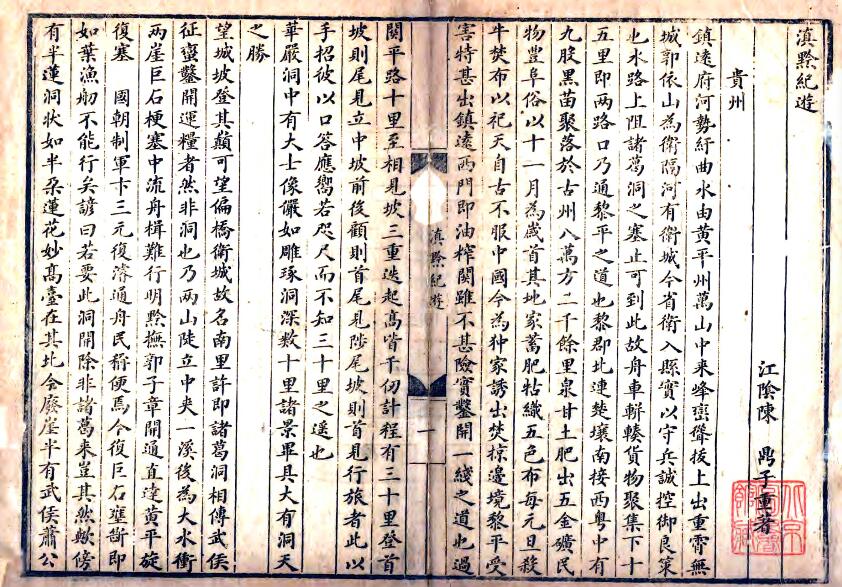 滇黔紀遊
江陰陳 鼎子重著
貴州
鎮遠府河勢紆曲水由黄平州萬山中来峰巒聳拔上出重霄無
城郭依山為衛隔河有衛城今省衛入縣實以守兵誠控御良策
也水路上阻諸葛洞之塞止可到此故舟車輧輳貨物聚集下十
五里即两路口乃通黎平之道也黎郡北連楚壤南接西粤中有
九股黑苗聚落於古州八萬方二千餘里泉甘土肥出五金礦民
物豐阜俗以十一月為歲首其地家蓄肥牯織五色布每元旦殺
牛焚布以祀天自古不服中國今為种家誘出焚掠邊境黎平受
害特甚出鎮遠西門即油榨関雖不甚險實鑿開一綫之道也過
滇黔紀遊
一
関平路十里至相見坡三重迭起髙皆千仞計程有三十里登首
坡則尾見立中坡前後顧則首尾見陟尾坡則首見行旅者此以
手招彼以口答應嚮若咫尺而不知三十里之遥也
華嚴洞中有大士像儼如雕琢洞深数十里諸景畢具大有洞天
之勝
望城坡登其巔可望偏橋衛城故名南里許即諸葛洞相傳武侯
征蠻鑿開運糧者然非洞也乃两山陡立中夹一溪後為大水衝
两崖巨石梗塞中流舟楫難行明黔撫郭子章開通直達黄平旋
復塞 國朝制軍卞三元復濬通舟民稱便焉今復巨石壅斷即
如葉漁舠不能行矣諺曰若要此洞開除非諸葛来豈其然歟傍
有半蓮洞狀如半朵蓮花妙髙臺在其北今廢崖半有武侯蕭公